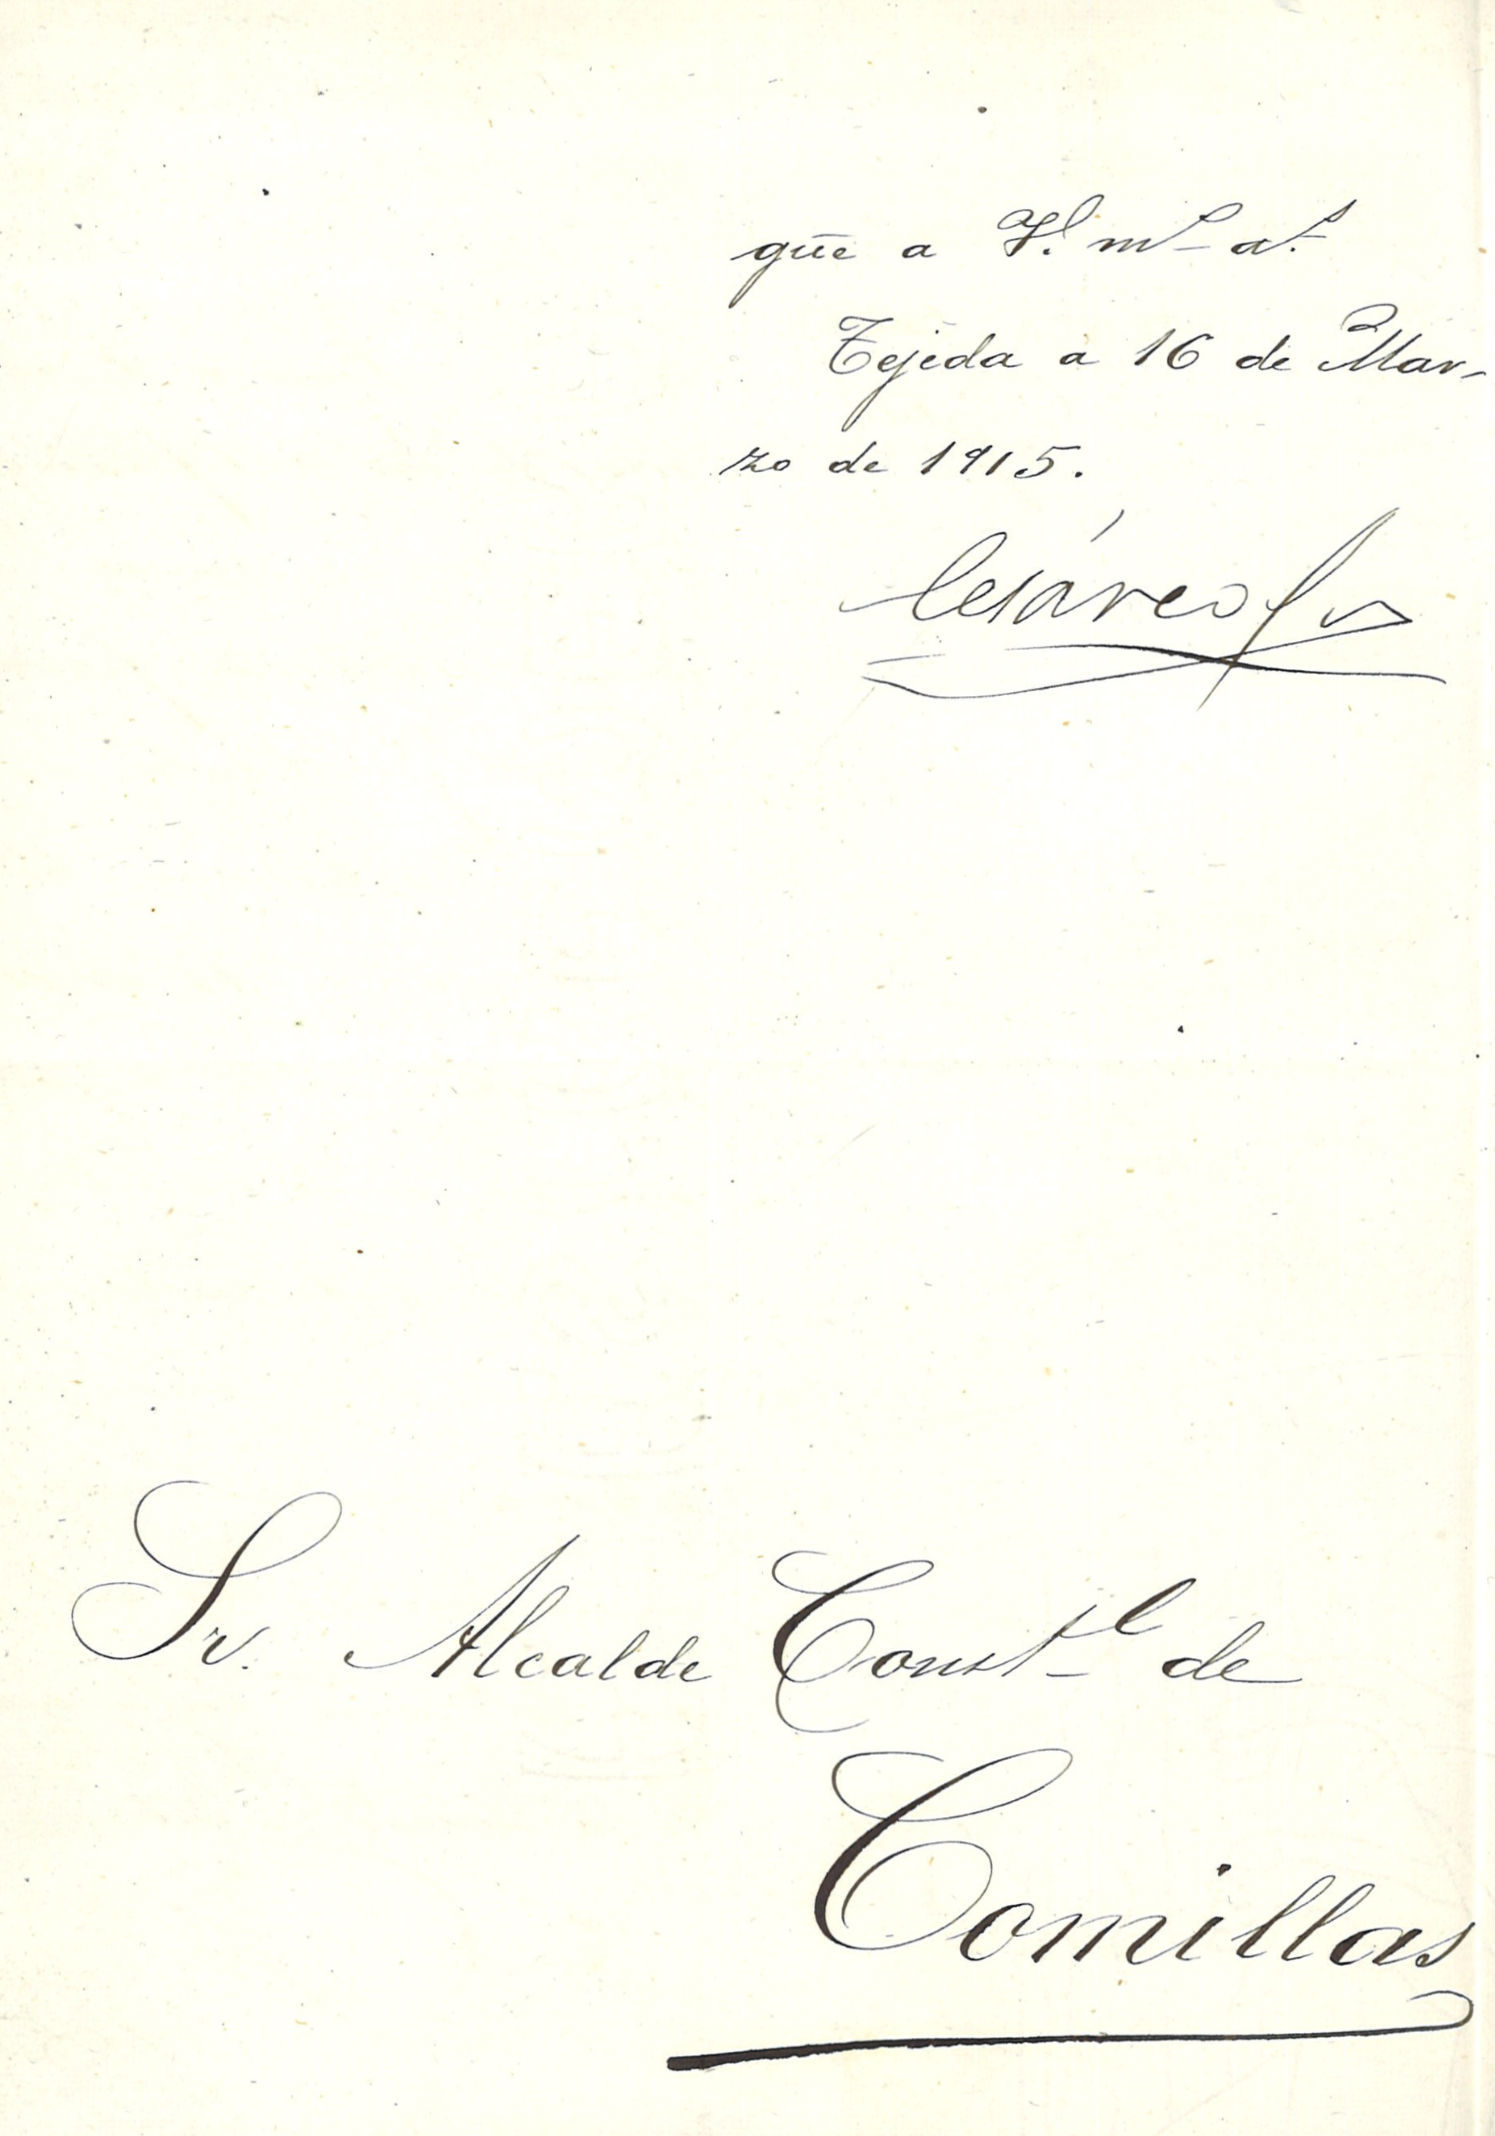 güe a V. mˢ aˢ.
Tejeda a 16 de Mar-
zo de 1915.
Cesáreo
Sr. Alcalde Constˡ de
Comillas